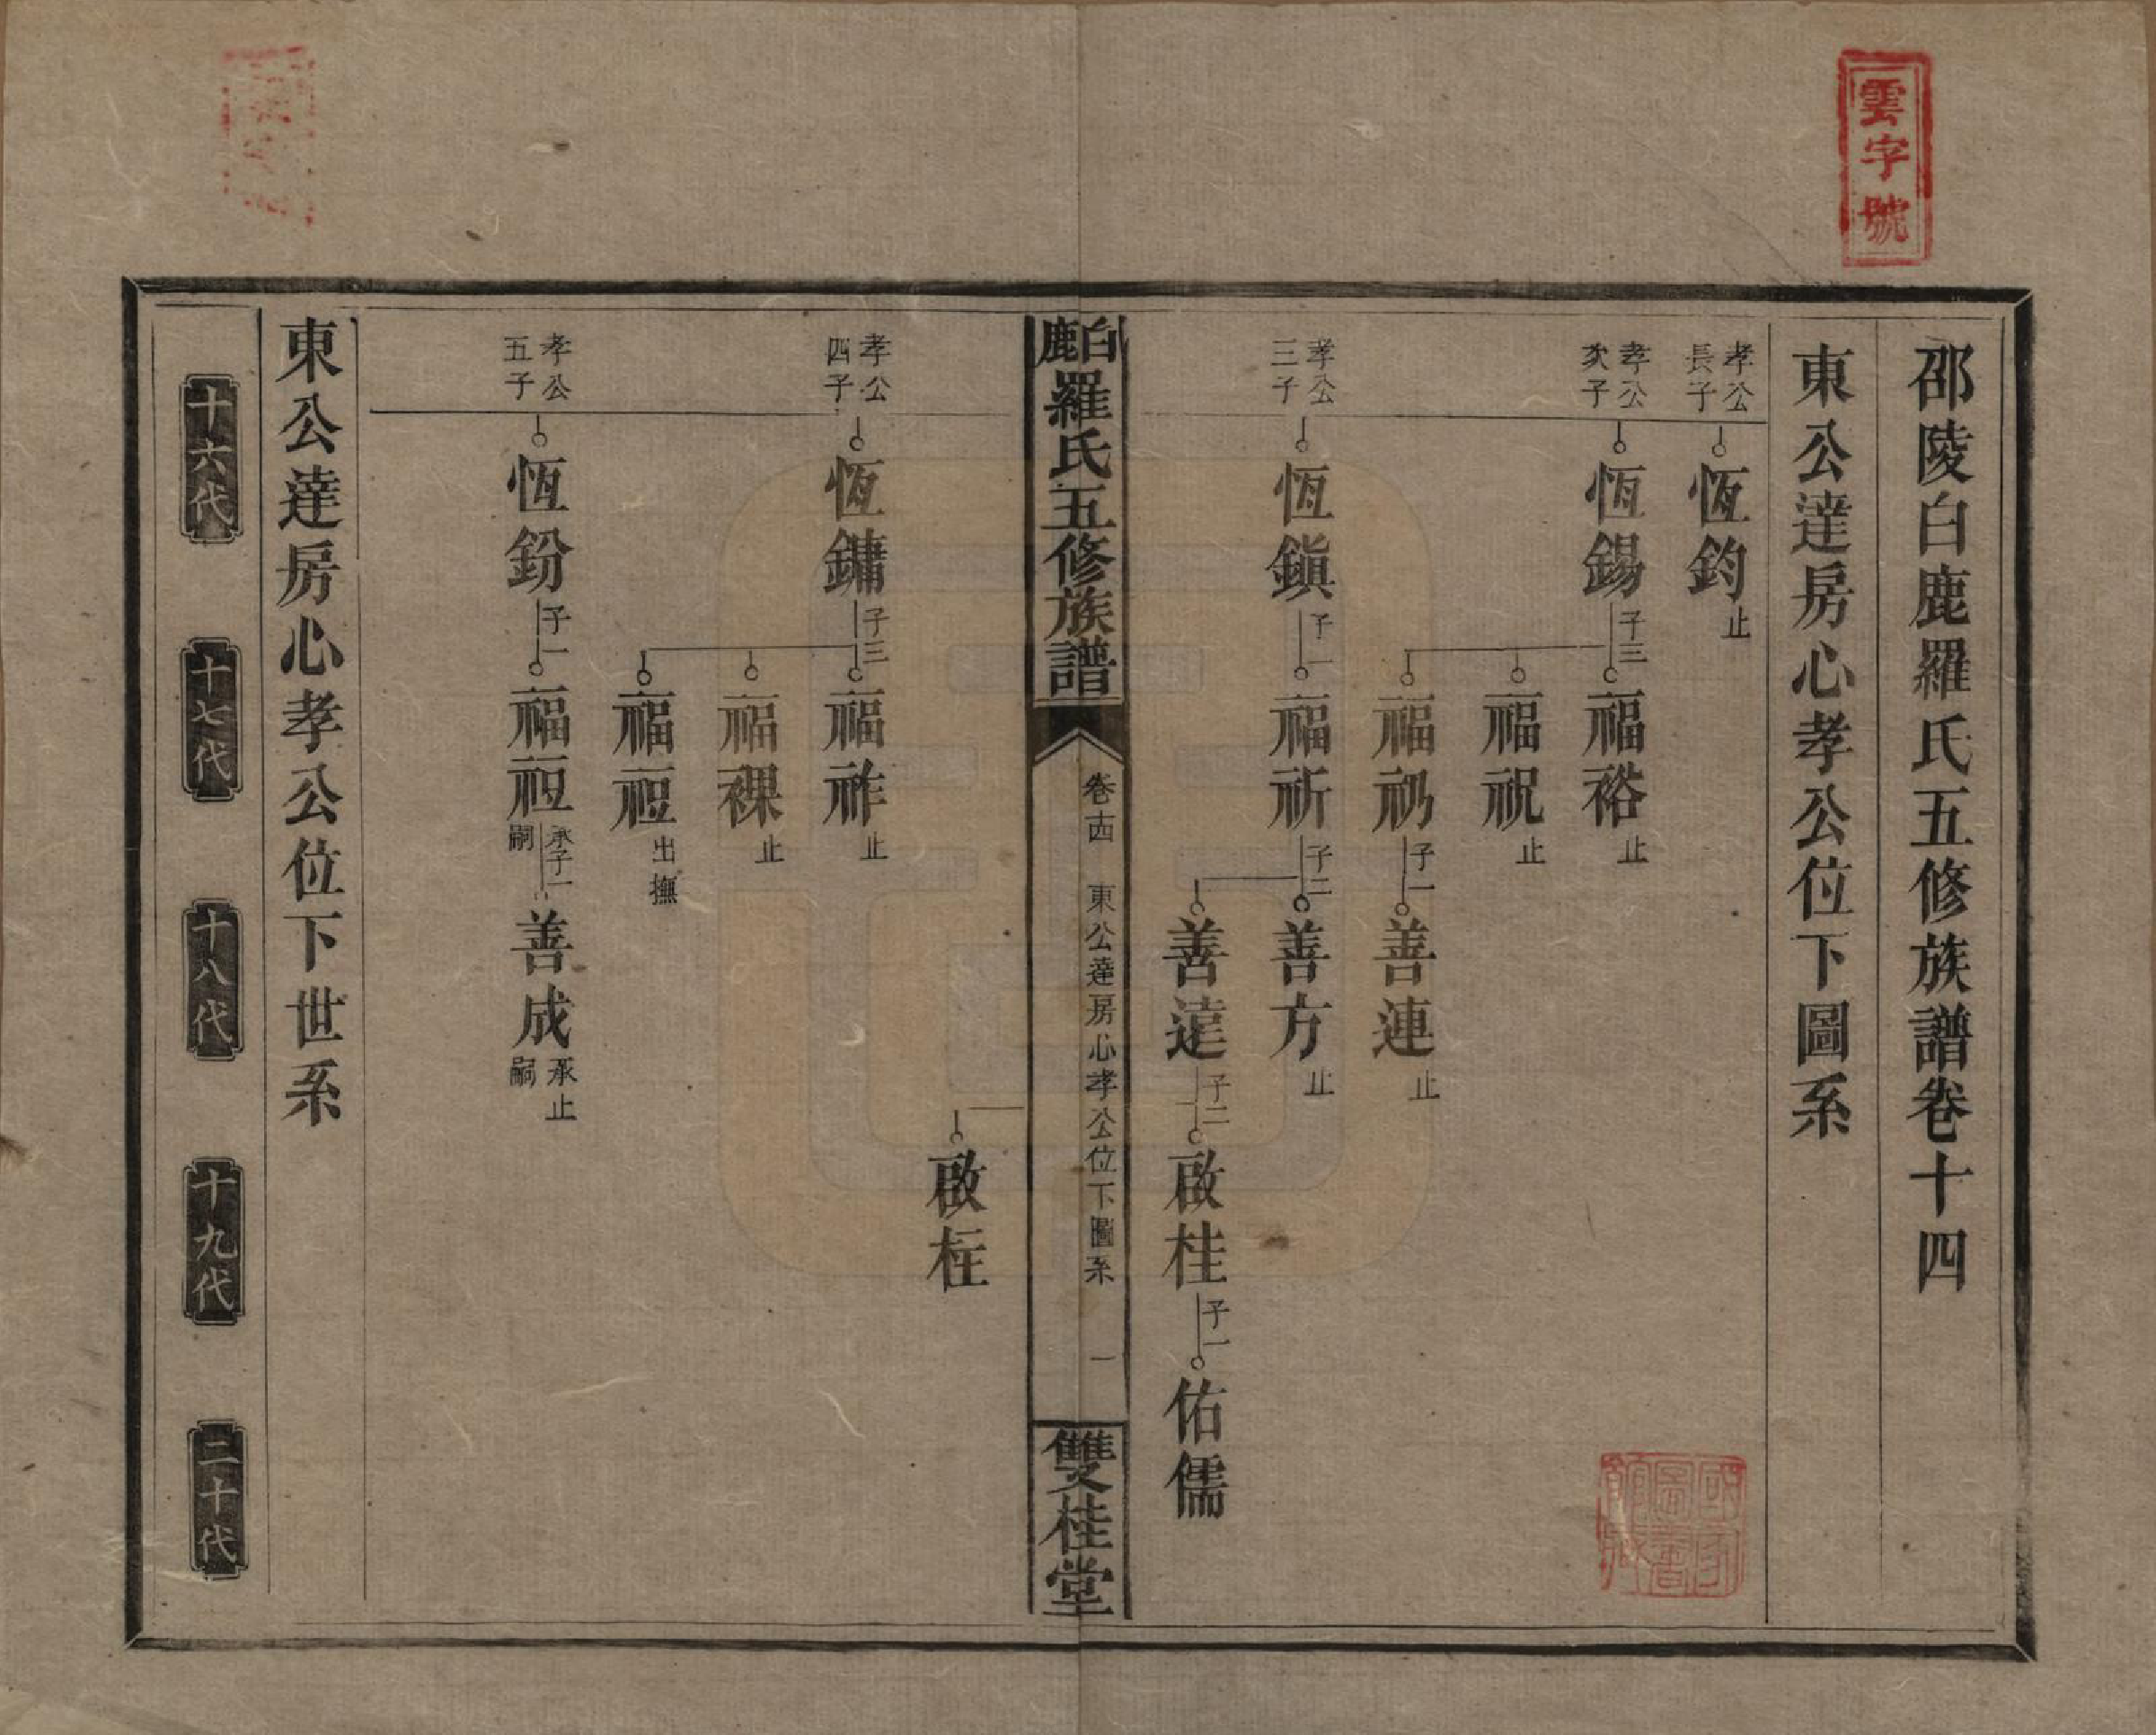 雲字號
邵陵白鹿羅氏五修族譜卷十四
東公達房心孝公位下圖系
孝公長子
恆鈞止
孝公次子
恆錫子三
福裕止
福祝止
福礽子一
善連止
孝公三子
恆鎮子一
福祈子二
善方止
善達子二
啟桂子一
佑儒
國家圖書館藏
白鹿羅氏五修族譜
卷十四 東公達房心孝公位下圖系 一
雙桂堂
啟枉
孝公四子
恆鏞子三
福祚止
福祼止
福䄈出撫
孝公五子
恆鈖子一
福䄈承嗣子一
善成承嗣止
東公達房心孝公位下世系
十六代
十七代
十八代
十九代
二十代